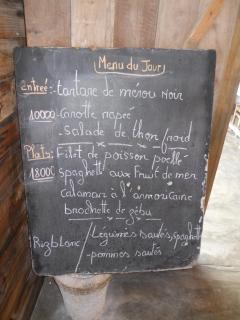 Menu du Jour
Entreé:. tartare de mérou noir
10000 - Carotte rapée
- Salade de thon/nord
Plats: Filet de poisson poêllé
18000 Spaghetti aux Fruit de mer
Calamar à l'armoricaine
brochette de zébu
Riz blanc / Légumes sautés, Spaghetti
- pommes sautés